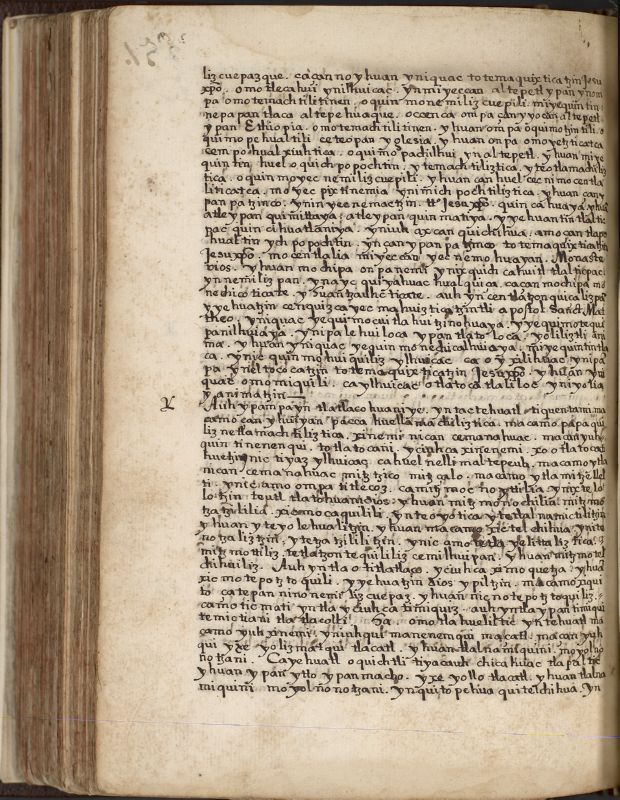 liz cuepazque. caçan no yhuan yniquac totemaquixticatzin Jesu
xpō. omotlecahui ynilhuicac. ynmiyeccan altepetl ypan ynom
pa omotemachtilitinen. oquinmonemilizcuepili. miyequintin
nepapan tlaca altepehuaque. ocçenca ompa çan yyocan altepetl
ypan Ethiopia. omotemachtilitinen. yhuan ompa oquimotzintili. o
quimopehualtili ceteopan yglesia. yhuan onpa omoyetzticatca
cempohual xiuhtica. oquimopadilhui ynaltepetl. yhuan miye
quintin huel oquichpopochtin. ytemachtiliztica. yteotlamachiliz
tica. oquinmoyecnemilizcuepili. yhuan can huel cecni mocentla
liticatca. moyecpixtinemia ynimichpochtiliztica. yhuan çan y
panpatzinco. yninyecnemactzin. ttº Jesuxpō. quincahuaya yhuan
atleypan quimittaya; atleypan quinmatiya. yyehuantin tlaltic
pac quincihuatlaniya. yniuh axcan quichihua. amo çan tlapo
hualtin ychpopochtin. ynçan ypanpatzinco totemaquixticatzin
Jesuxpō. mocentlalia miyeccan yecnemohuayan. Monaste
rios. yhuan mochipa onpanemi ynixquich cahuitl tlalticpac
ynnemilizpan. ynayc quiyahuac hualquiça. caçan mochipa mo
nedicoticate.
yyehuatzin cenquizcayecmahuizticatzintli apostol Sanct Mat
theo. yniquac yequimocuitlahuitzinohuaya. yyequimotequi
panilhuiaya. ynipalehuiloca ypantlatoloca; yoliliztli ani
ma. yhuan yniquac yequinmonedichalhuiaya; miyequintin tla
ca. ynic quinmohuiquiliz ylhuicac
pa yneltococatzin totemaquixticatzin Jesuxpō. yhuan yni
quac omomiquili. ca ylhuicac otlatocatlaliloc yniyolia
yanimatzin
Y Auh ypampa yn tlatlacohuaniye. yntactehuatl. tiquentami ma
camo çan yhuiyan pacca huellamachiliztica. macamo papaqui
liz netlamachtiliztica. xinemi nican cemanahuac. maçan yuh
quin tinenenqui. totlatocani. yciuhca xinenemi. xotlatoca
huetzi ynic tiyaz ylhuicac cahuel nelli maltepeuh. macamo ytla
nican cemanahuac mitztzico mitzçalo. macamo ytla mitzellel
ti. ynic amo ompa titlecoz.
lotzin teputl tlatohuani dios. yhuan mitzmonochilia. mitzmo
tzatzililia.
yhuan yteyolehualitzin. yhuan macamo xictelchihua; ynite
notzaliztzin; ytetzatzililitzin.
mitzmotiliz. tetlatzontequililiz cemilhuipan. yhuan mitzmotel
chihuiliz. Auh yntla otitlatlaco. yciuhca ximoquetza; yhuan
xicmotepotztoquili. yyehuatzin dios ypiltzin. macamo xiqui
to çatepan ninonemilizcuepaz. yhuan nicnotepotztoquiliz.
camo ticmati yntla yciuhca timiquiz. auh yntla ypan timiqui
temictiani tlatlacolli. Sa. omotlahueliltic yn tehuatl ma
camo yuh xinemi; yniuhqui manenemqui maçatl. maçan yuh
qui yxe yoliz matqui tlacatl. yhuan tlalnamiquini. moyolno
notzani. Ca yehuatl oquichtli tiyacauh chicahuac tlapaltic
yhuan ypan ytto ypan macho. yxe yollo tlacatl. yhuan tlalna
miquini moyolnonotzani. ynquitopehua quitelchihua. yn